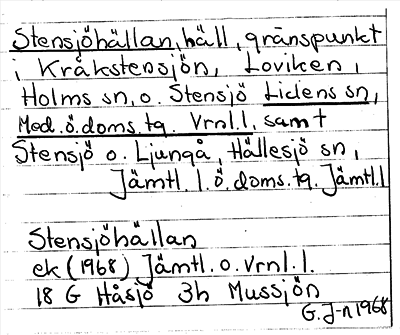 Stensjöhällan, häll, gränspunkt
i Kråkstensjön, Loviken,
Holms sn, o. Stensjö Lidens sn,
Med. ö. doms. tg. Vrnl. l., samt
Stensjö o. Ljungå, Hällesjö sn,
Jämtl. l. ö. doms. tg. Jämtl. l
Stensjöhällan
ek (1968) Jämtl. o. Vrnl. l.
18 G Håsjö 3h Mussjön
G. J-n 1968